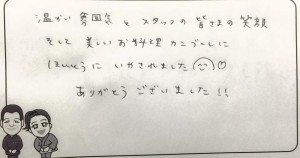 温かい雰囲気とスタッフの皆さまの笑顔
そして美しいお料理 カンゲーしに
ほんとうに いやされました♡
ありがとう ございました!!